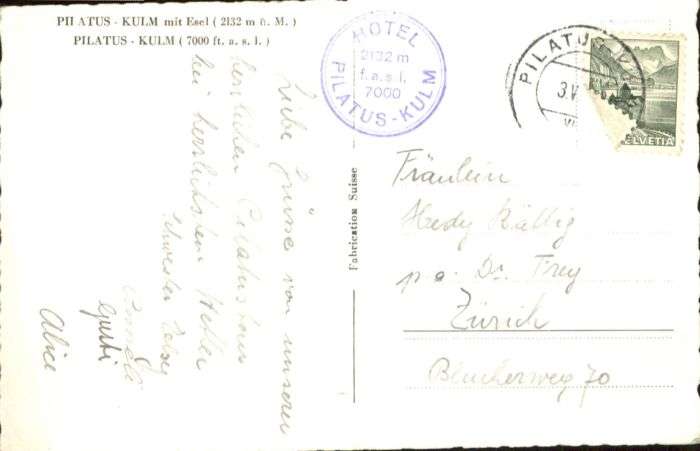 PILATUS - KULM mit Esel ( 2132 m ü. M. )
PILATUS - KULM ( 7000 ft. a. s. l. )
HOTEL
2132 m
f. a. s. l.
7000
PILATUS - KULM
PILATUS
3.V
HELVETIA
Fabrication Suisse
Liebe Grüsse von unserer
herrlichen Pilatustour
bei herrlichstem Wetter
Schwester
Gusti
Alice
Fräulein
Hedy Bättig
p. a. Dr. Frey
Zürich
Bleicherweg 70